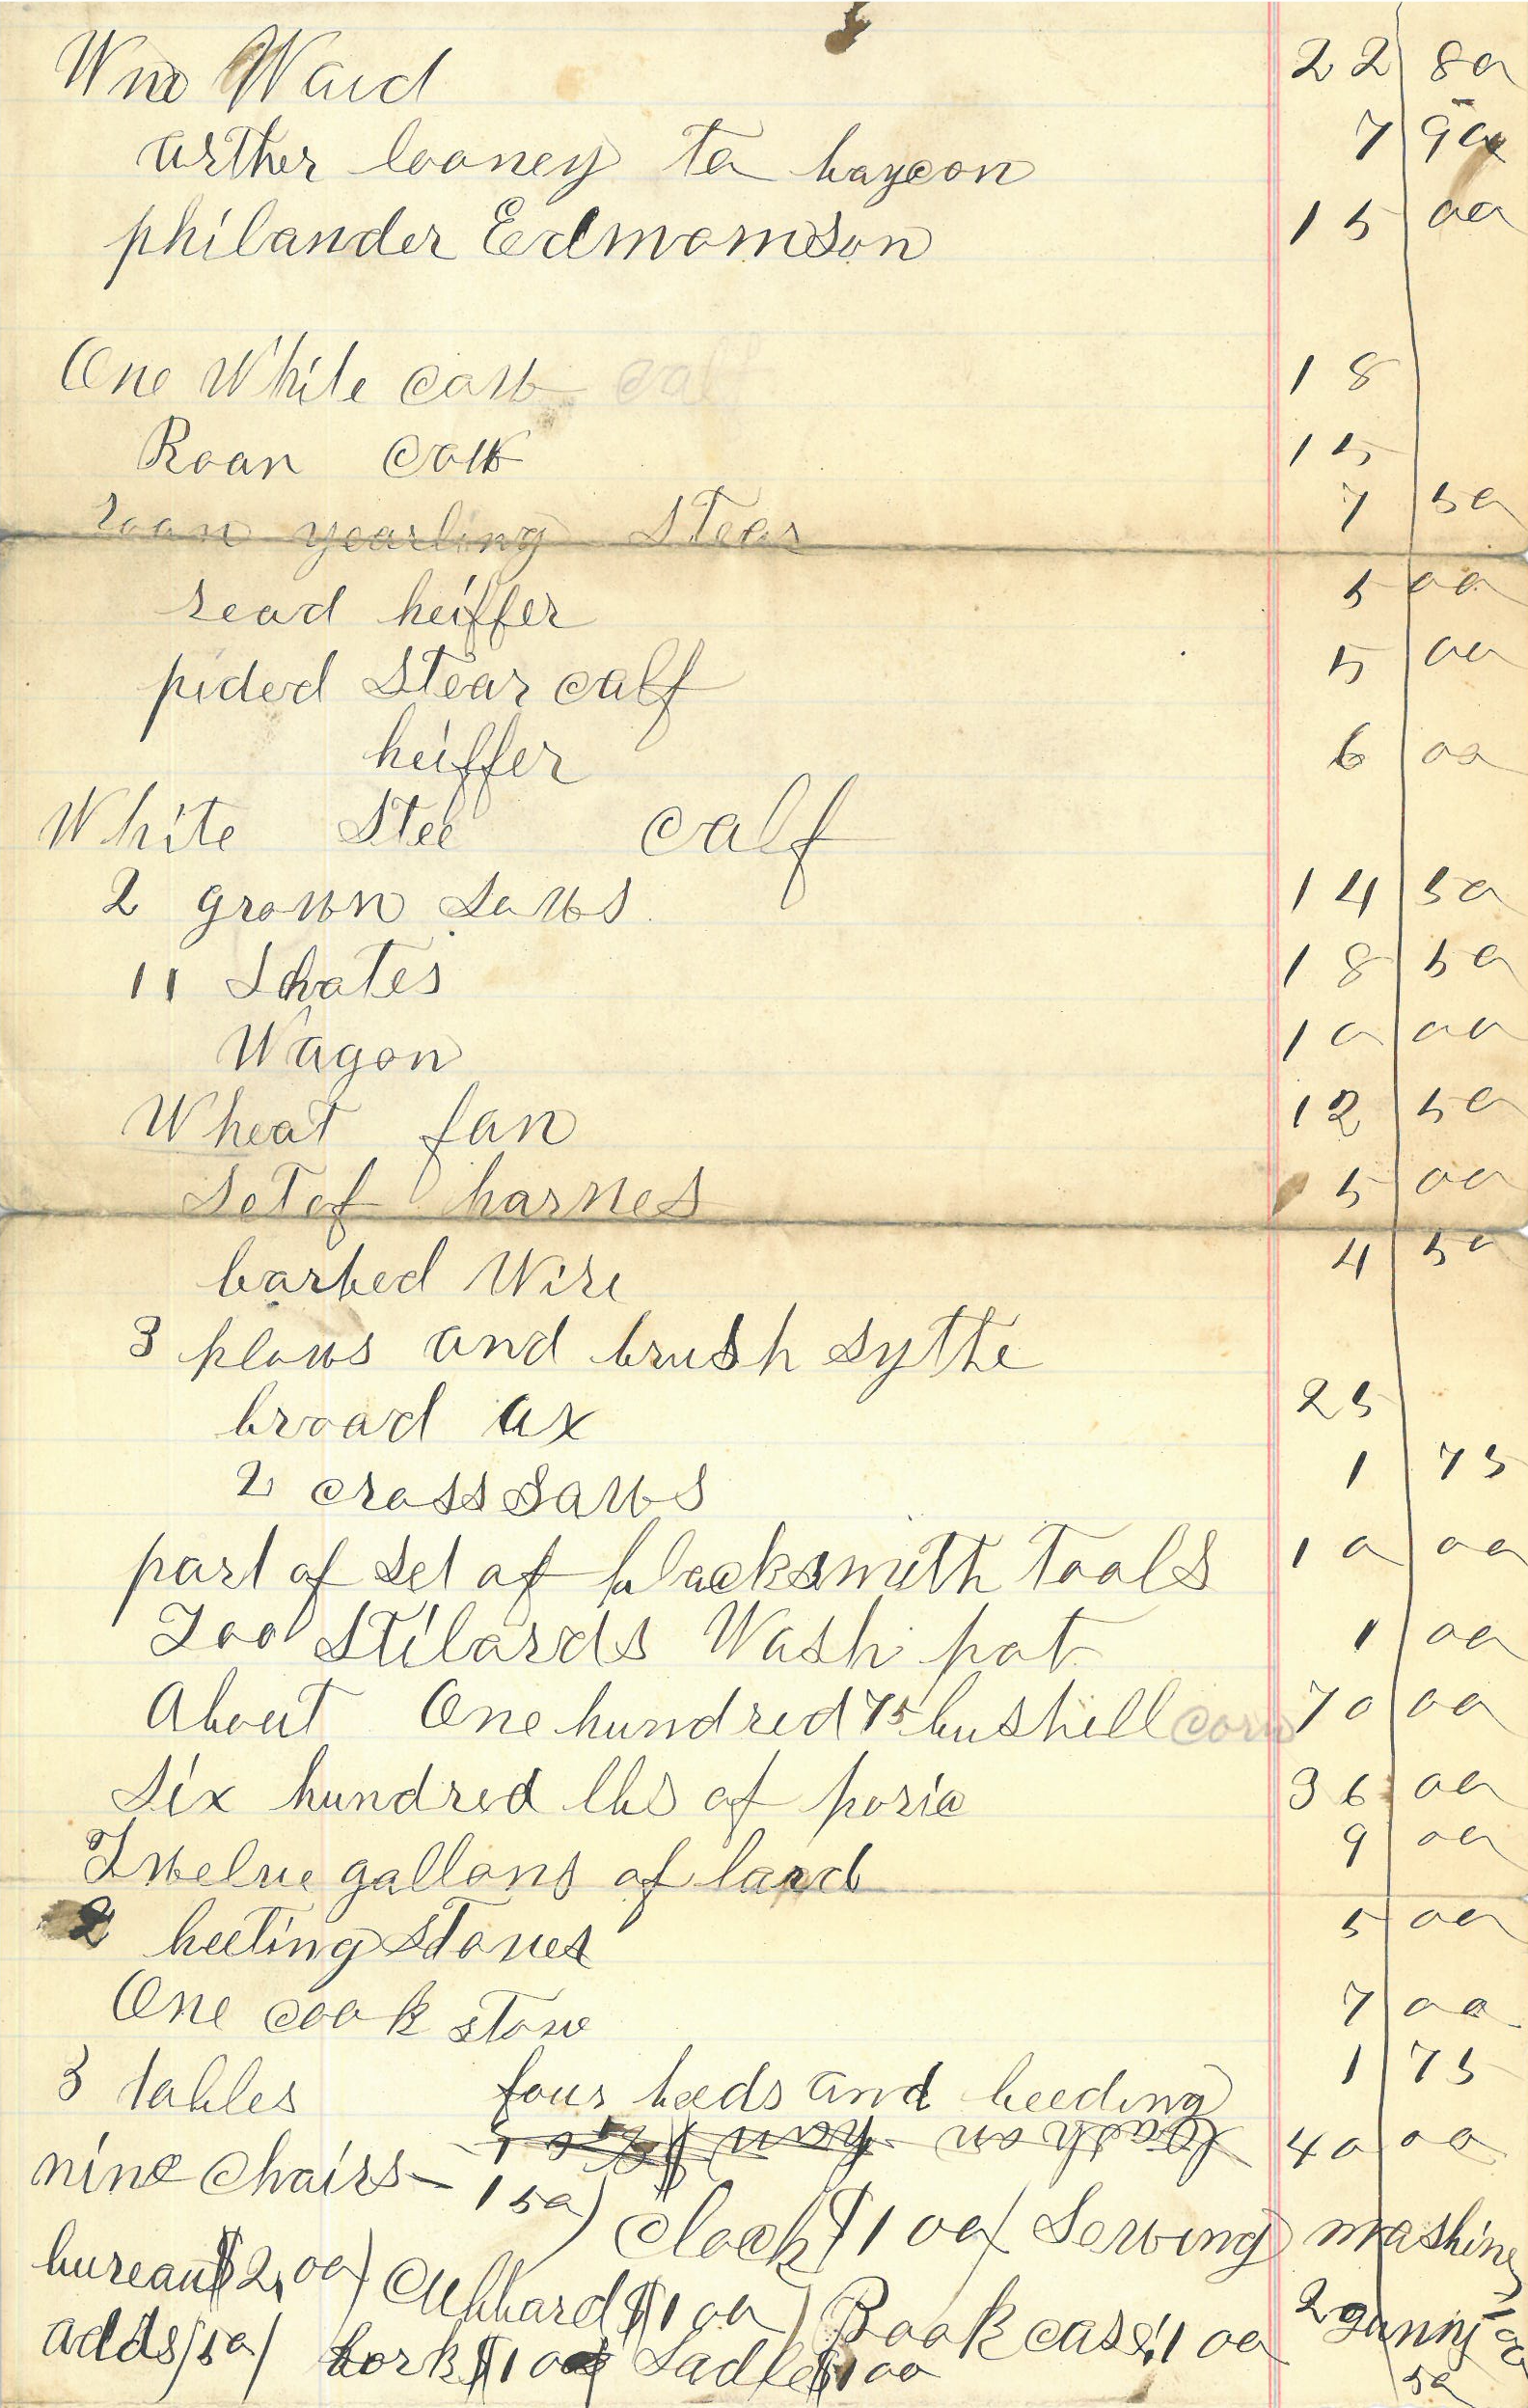 Wm Ward 22 80
arther looney to baycon 7 90
philander Edmomson 15 00
One White cow calf 18
Roan cow 15
roan yearling Stear 7 50
read heiffer 5 00
pided Stear calf 5 00
heiffer 6 00
White Stee calf
2 grown sows 14 50
11 Shotes 18 50
Wagon 10 00
Wheat fan 12 50
Set of harnes 5 00
barbed Wire 4 50
3 plows and brush sythe
broad ax 25
2 cross saws 1 75
part of set of blacksmith tools 10 00
Too Stilards Wash pot 1 00
About One hundred 75 bushell corn 70 00
Six hundred lbs of porie 36 00
Twelve gallons of lard 9 00
2 heeting stoves 5 00
One cook stove 7 00
3 tables four beeds and beeding 1 75
40 00
nine chairs - 1 50) clock $1 00 / Sewing mashine
bureau $2,00) Cubbard $1 00) Book case $1 00 2 guns
adds / 50 / Sadle $1 00 50